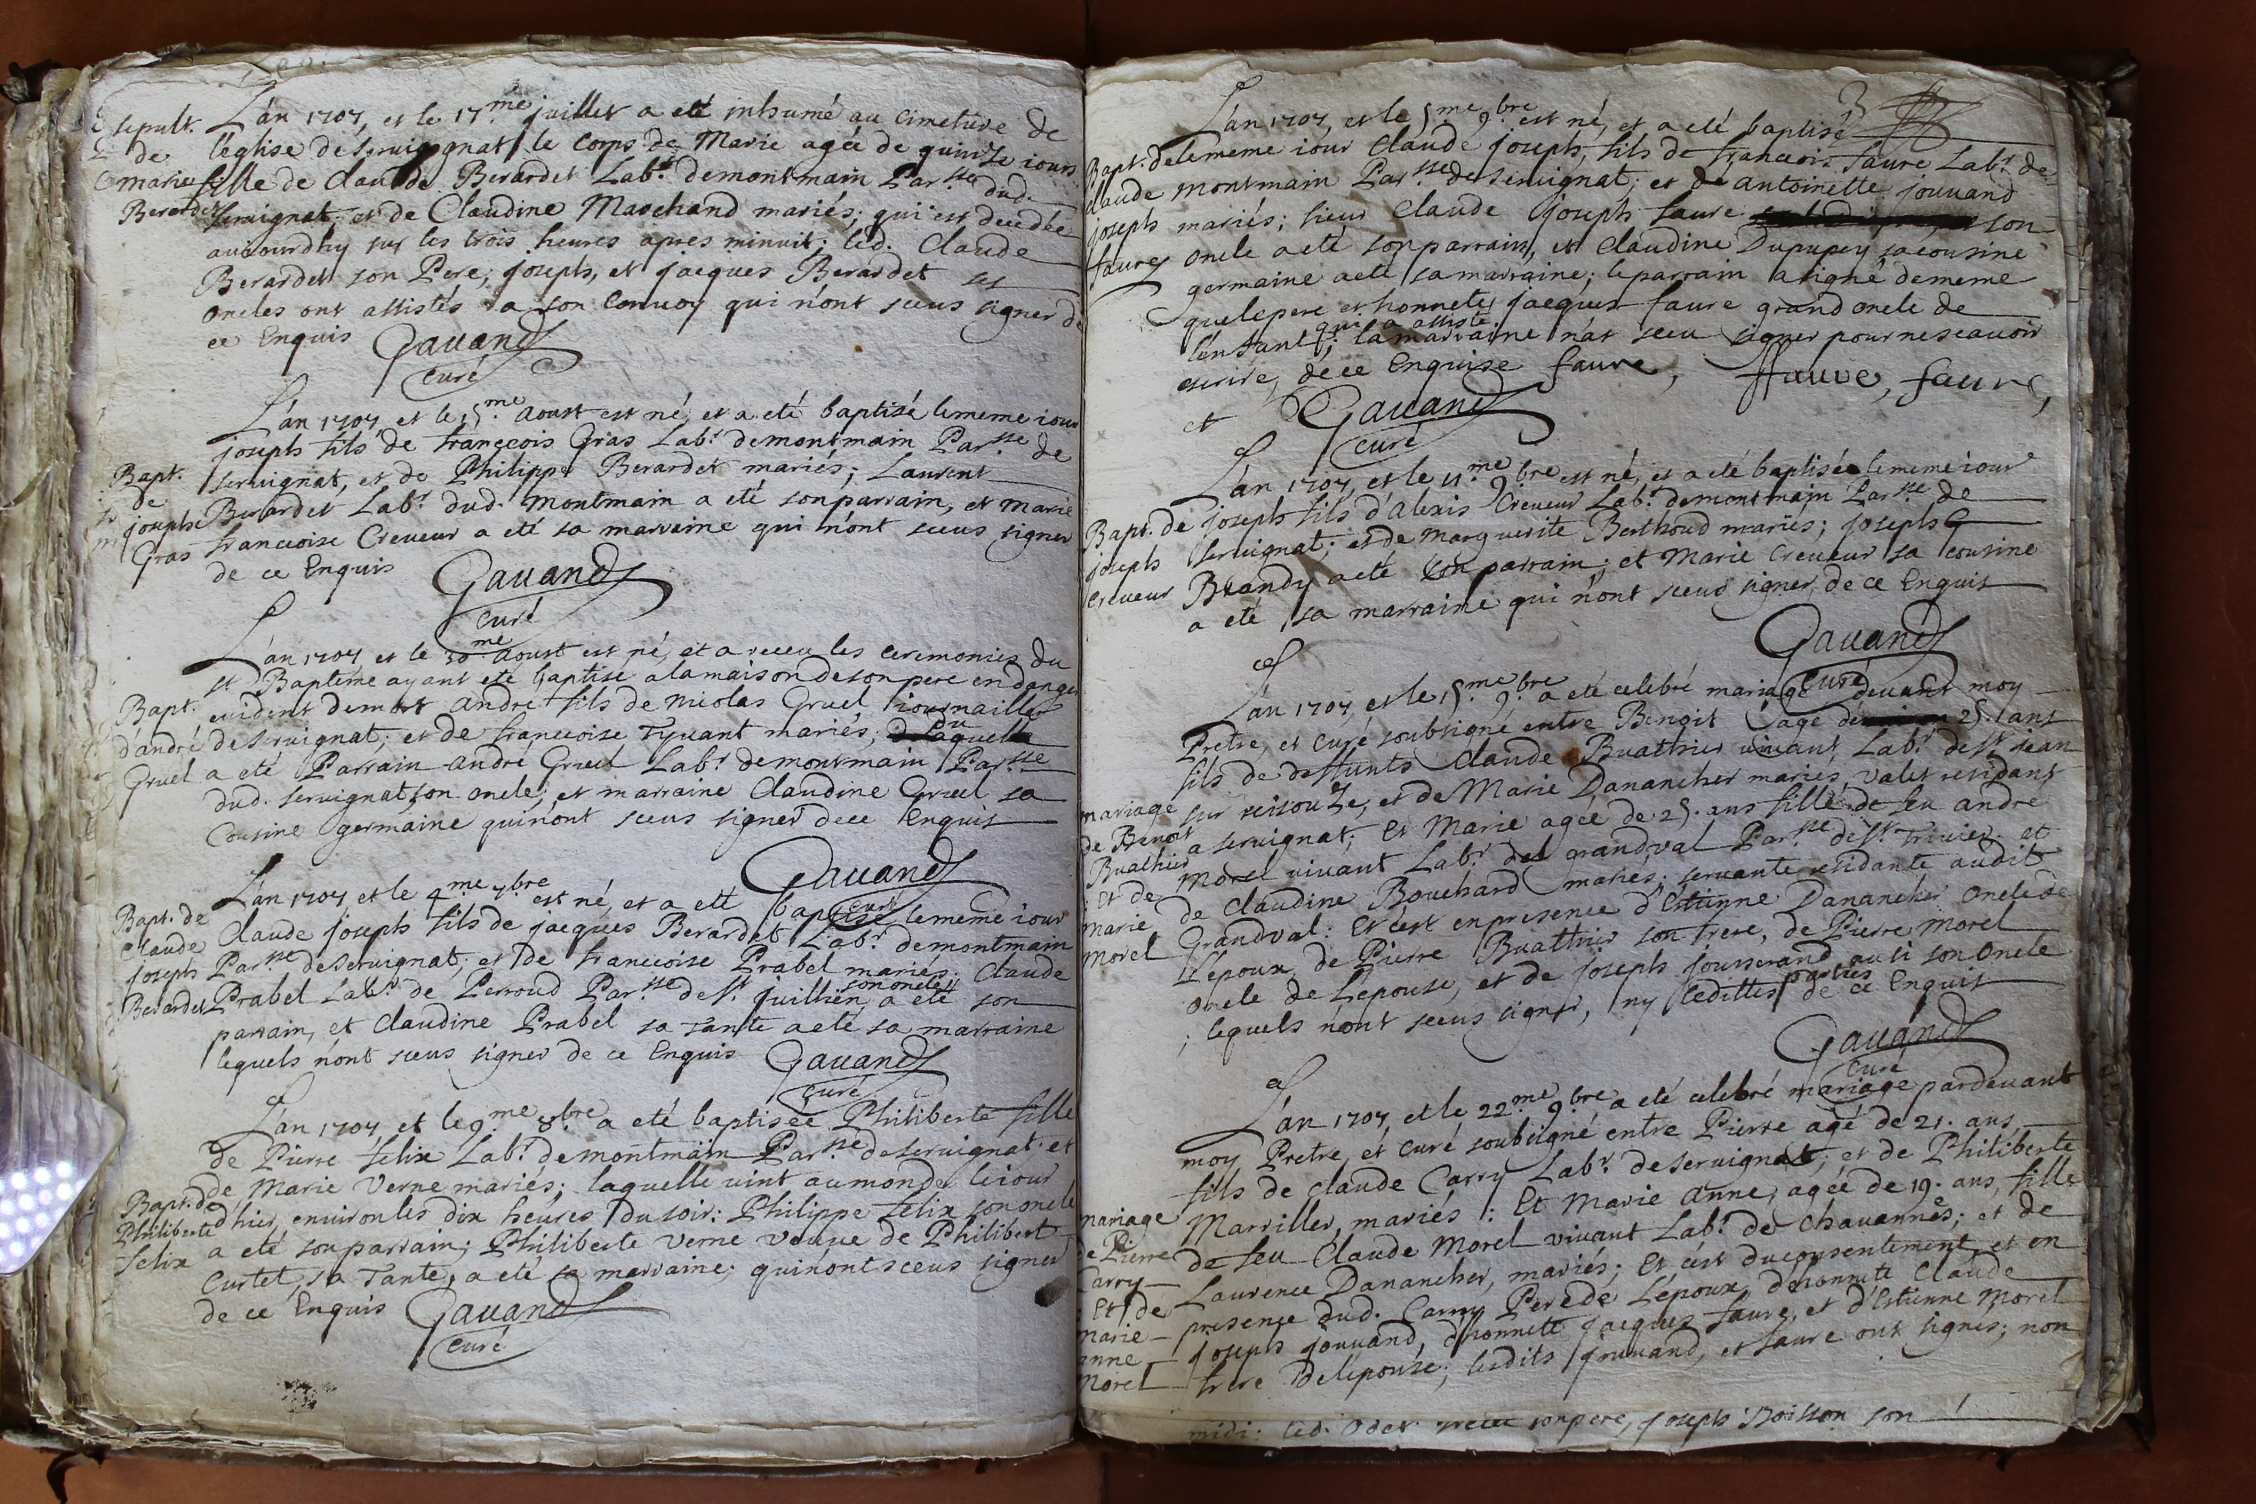 sepult.
de
marie
Berardet
L'an 1707, et le 17.me juillet a eté inhumé au cimetiere de
l'eglise de servignat le corps de Marie agée de quinze iours
fille de Claude Berardet Lab.r de montmain Par.sse dud.
servignat; et de Claudine Marchand mariés; qui est decedée
aujourdhy sur les trois heures apres minuit; led. Claude
Berardet son Pere; joseph, et jacques Berardet ses
oncles ont assistés a son convoy qui n'ont sceus signer de
ce Enquis Gavand
curé
Bapt.
de
joseph
Gras
L'an 1707, et le 15.me Aoust est né, et a eté baptisé le meme iour
joseph fils de francois Gras Lab.r de montmain Par.sse de
servignat, et de Philippe Berardet mariés; Laurent
Berardet Lab.r dud. montmain a eté son parrain, et Marie
francoise Creveur a eté sa marraine qui n'ont sceus signer
de ce Enquis Gavand
curé
Bapt.
d'andré
Gruel
L'an 1707, et le 30.me Aoust est né, et a receu les ceremonies du
st Bapteme ayant eté baptisé a la maison de son pere en danger
evident de mort André fils de Nicolas Gruel journailler
de servignat; et de francoise Tyvant mariés; du
a eté Parrain André Gruel Lab.r de montmain Par.sse
dud. servignat, son oncle; et marraine Claudine Gruel sa
cousine germaine qui n'ont sceus signer de ce Enquis
Gavand
curé
Bapt. de
Claude
joseph
Berardet
L'an 1707 et le 4.me 7.bre est né, et a eté baptisé le meme iour
Claude joseph fils de jacques Berardet Lab.r de montmain
Par.sse de servignat; et de francoise Prabel mariés; Claude
Prabel Lab.r de Perroud Par.sse de st juillien, son oncle a eté son
parrain, et Claudine Prabel sa Tante a eté sa marraine
lequels n'ont sceus signer de ce Enquis Gavand
curé
Bapt. de
Philiberte
felix
L'an 1707 et le 9.me 8.bre a eté baptisée Philiberte fille
de Pierre felix Lab.r de montmain Par.sse de servignat et
de Marie Verne mariés; laquelle vint au monde le iour
d'hier, environ les dix heures du soir: Philippe felix son oncle
a eté son parrain; Philiberte Verne veuve de Philibert
Curtet, sa Tante, a eté sa marraine; qui n'ont sceus signer
de ce Enquis Gavand
curé
3
Bapt. de
claude
joseph
faure
L'an 1707, et le 5.me 9.bre est né, et a eté baptisé
le meme iour Claude joseph, fils de francois faure Lab.r de
Montmain Par.sse de servignat; et de Antoinette jouvand
mariés; sieur Claude joseph faure son
oncle a eté son parrain, et Claudine Dupupey sa cousine
germaine a eté sa marraine; le parrain a signé de meme
que le pere et honnete jacques faure grand oncle de
l'enfant qui a assisté; la marraine n'at sceu signer pour ne scavoir
escrire, de ce Enquise faure, ffauve, faure,
et Gavand
curé
Bapt. de
joseph
Creveur
L'an 1707, et le 11.me 9.bre est né, et a eté baptisée le meme iour
joseph fils d'Alexis Creveur Lab.r de montmain Par.sse de
servignat; et de Marguerite Berthoud mariés; joseph
Brandy a eté son parrain; et Marie Creveur sa cousine
a eté sa marraine qui n'ont sceus signer, de ce Enquis
Gavand
curé
mariage
de Benoit
Buathier
et de
Marie
Morel
L'an 1707, et le 15.me 9.bre a eté celebré mariage devant moy
Pretre, et curé soubsigné entre Benoit agé de 25. ans
fils de deffunts Claude Buathier vivant Lab.r de st jean
sur reisouze, et de Marie Danancher mariés, valet residant
a servignat; Et Marie agée de 25. ans fille de feu andré
Morel vivant Lab.r del grandval Par.sse de st Trivier et
de Claudine Bouchard mariés; servante residante audit
Grandval: Et c'est en presence d'Estienne Danancher oncle de
L'epoux, de Pierre Buathier son frere, de Pierre Morel
oncle de L'epouse, et de joseph jousserand aussi son oncle
; lequels n'ont sceus signer, ny lesdittes parties de ce Enquis
Gavand
curé
mariage
de Pierre
Carry
Et de
Marie
anne
Morel
L'an 1707, et le 22.me 9.bre a eté celebré mariage pardevant
moy Pretre, et curé soubsigné entre Pierre agé de 21. ans,
fils de Claude Carry Lab.r de servignat; et de Philiberte
Marviller, mariés: Et Marie Anne, agée de 19. ans, fille
de feu Claude Morel vivant Lab.r de Chavannes; et de
Laurence Danancher, mariés; Et c'est du consentement, et en
presence dud. Carry Pere de L'epoux, d'honnete Claude
joseph jouvand, d'honnete jacques faure, et d'Estienne Morel
frere de l'epouse; lesdits jouvand, et faure ont signés; non
midi: led. Odet son pere, joseph Boisson son